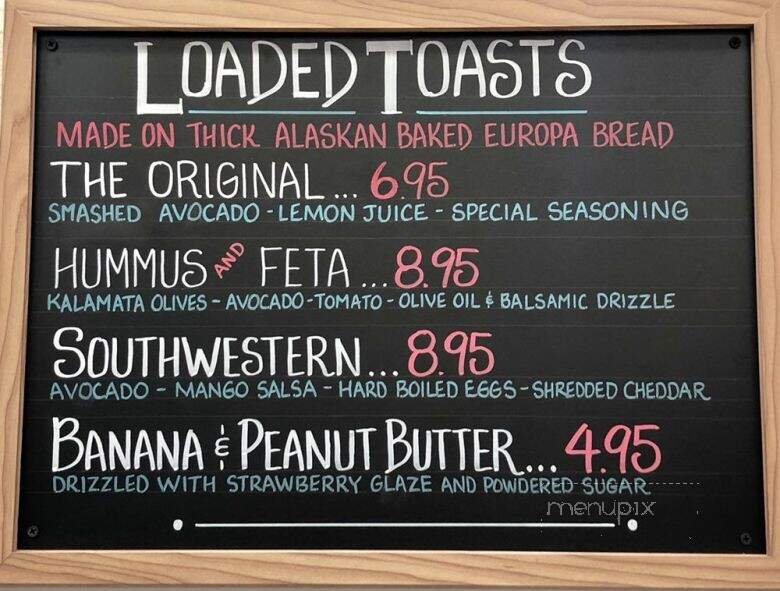 LOADED TOASTS
MADE ON THICK ALASKAN BAKED EUROPA BREAD
THE ORIGINAL... 6.95
SMASHED AVOCADO - LEMON JUICE - SPECIAL SEASONING
HUMMUS AND FETA ... 8.95
KALAMATA OLIVES - AVOCADO - TOMATO - OLIVE OIL & BALSAMIC DRIZZLE
SOUTHWESTERN... 8.95
AVOCADO - MANGO SALSA - HARD BOILED EGGS - SHREDDED CHEDDAR
BANANA & PEANUT BUTTER... 4.95
DRIZZLED WITH STRAWBERRY GLAZE AND POWDERED SUGAR
menupix